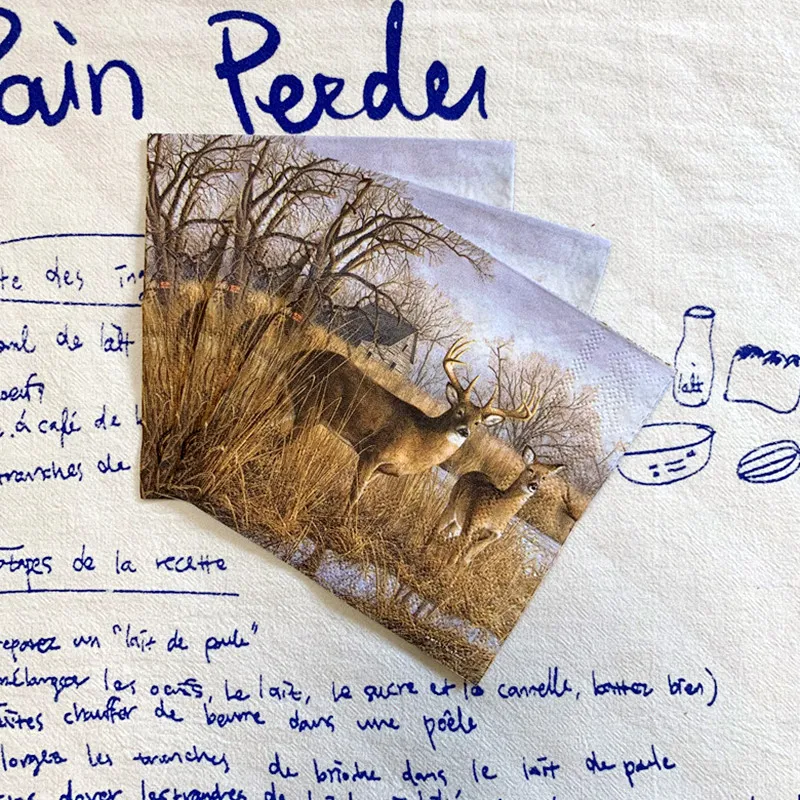 Pain Perdu
te des ing
ml de lait
oeuf?
à café de
tranches de
lait
étapes de la recette
réparez un "lait de poule"
mélanger les oeufs, le lait, le sucre et la cannelle, battez bien)
aites chauffer de beurre dans une poêle
longez les tranches de brioche dans le lait de poule
dorer les tranches de